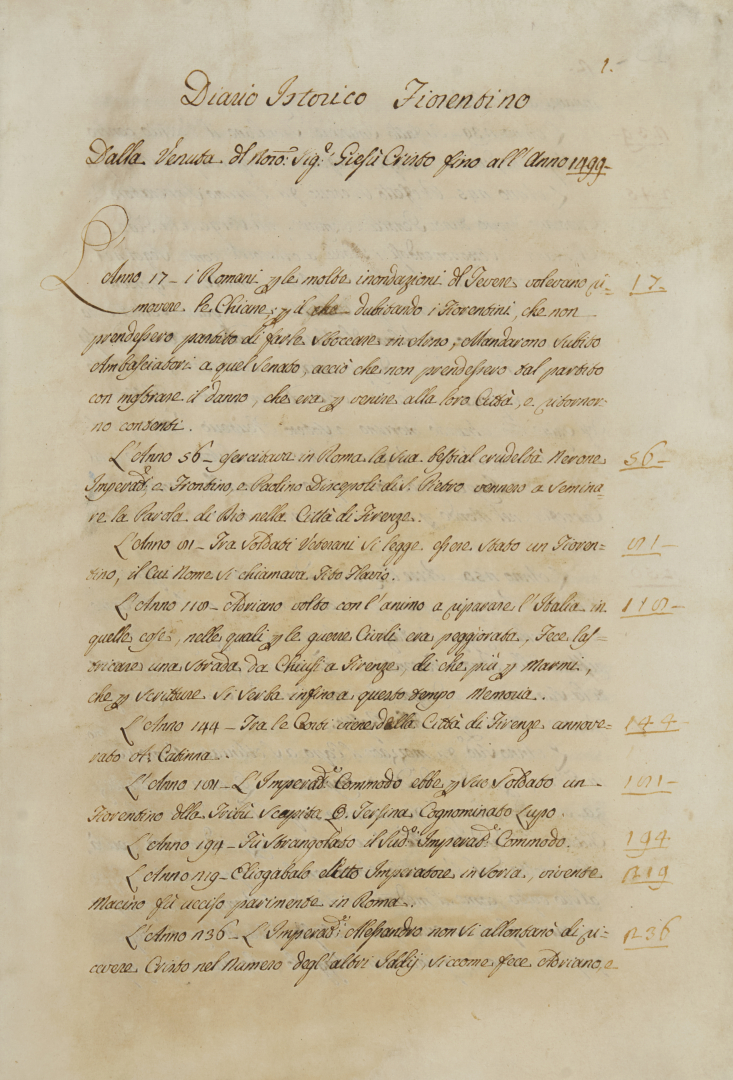 1.
Diario Istorico Fiorentino
Dalla Venuta dl Nrõ: Sig:e Giesù Cristo fino all'Anno 1499
L'Anno 17 - i Romani p le molte inondazioni dl Tevere volevano ri= 17.
movere le Chiane; p il che dubitando i Fiorentini, che non
prendessero partito di farle sboccare in Arno, Mandarono subito
Ambasciatori a quel Senato, acciò che non prendessero tal partito
con mostrare il danno, che era p venire alla loro Città, e ritornor=
no consenti.
L'Anno 56 - esercitava in Roma la sua bestial crudeltà Nerone 56
Imperad:e e Frontino, e Paolino Discepoli di S. Pietro vennero a Semina=
re la Parola di Dio nella Città di Firenze.
L'Anno 81 - Tra Soldati Veterani si legge essere stato un Fioren= 81
tino, il Cui Nome si chiamava Tito Flavio.
L'Anno 118 - Adriano volto con l'animo a riparare l'Italia in 118
quelle cose, nelle quali p le guerre Civili era peggiorata, Fece las=
tricare una strada da Chiusi a Firenze, di che più p Marmi,
che p Scritture si serba infino a questo tempo Memoria.
L'Anno 144 - Tra le Corti viene della Città di Firenze annove= 144
rato A. Catinna.
L'Anno 181 - L'Imperad:e Commodo ebbe p suo Soldato un 181
Fiorentino dlla Tribù Scaptia Tersina Cognominato Lupo.
L'Anno 194 - Fù strangolato il Sud:o Imperad:e Commodo. 194
L'Anno 219 - Eliogabalo eletto Imperatore in Soria, vivente 219
Macino fù ucciso parimente in Roma.
L'Anno 236 - L'Imperad:e Alessandro non si allontanò di ri= 236
cevere Cristo nel Numero degl'altri Iddij, siccome fece Adriano, e